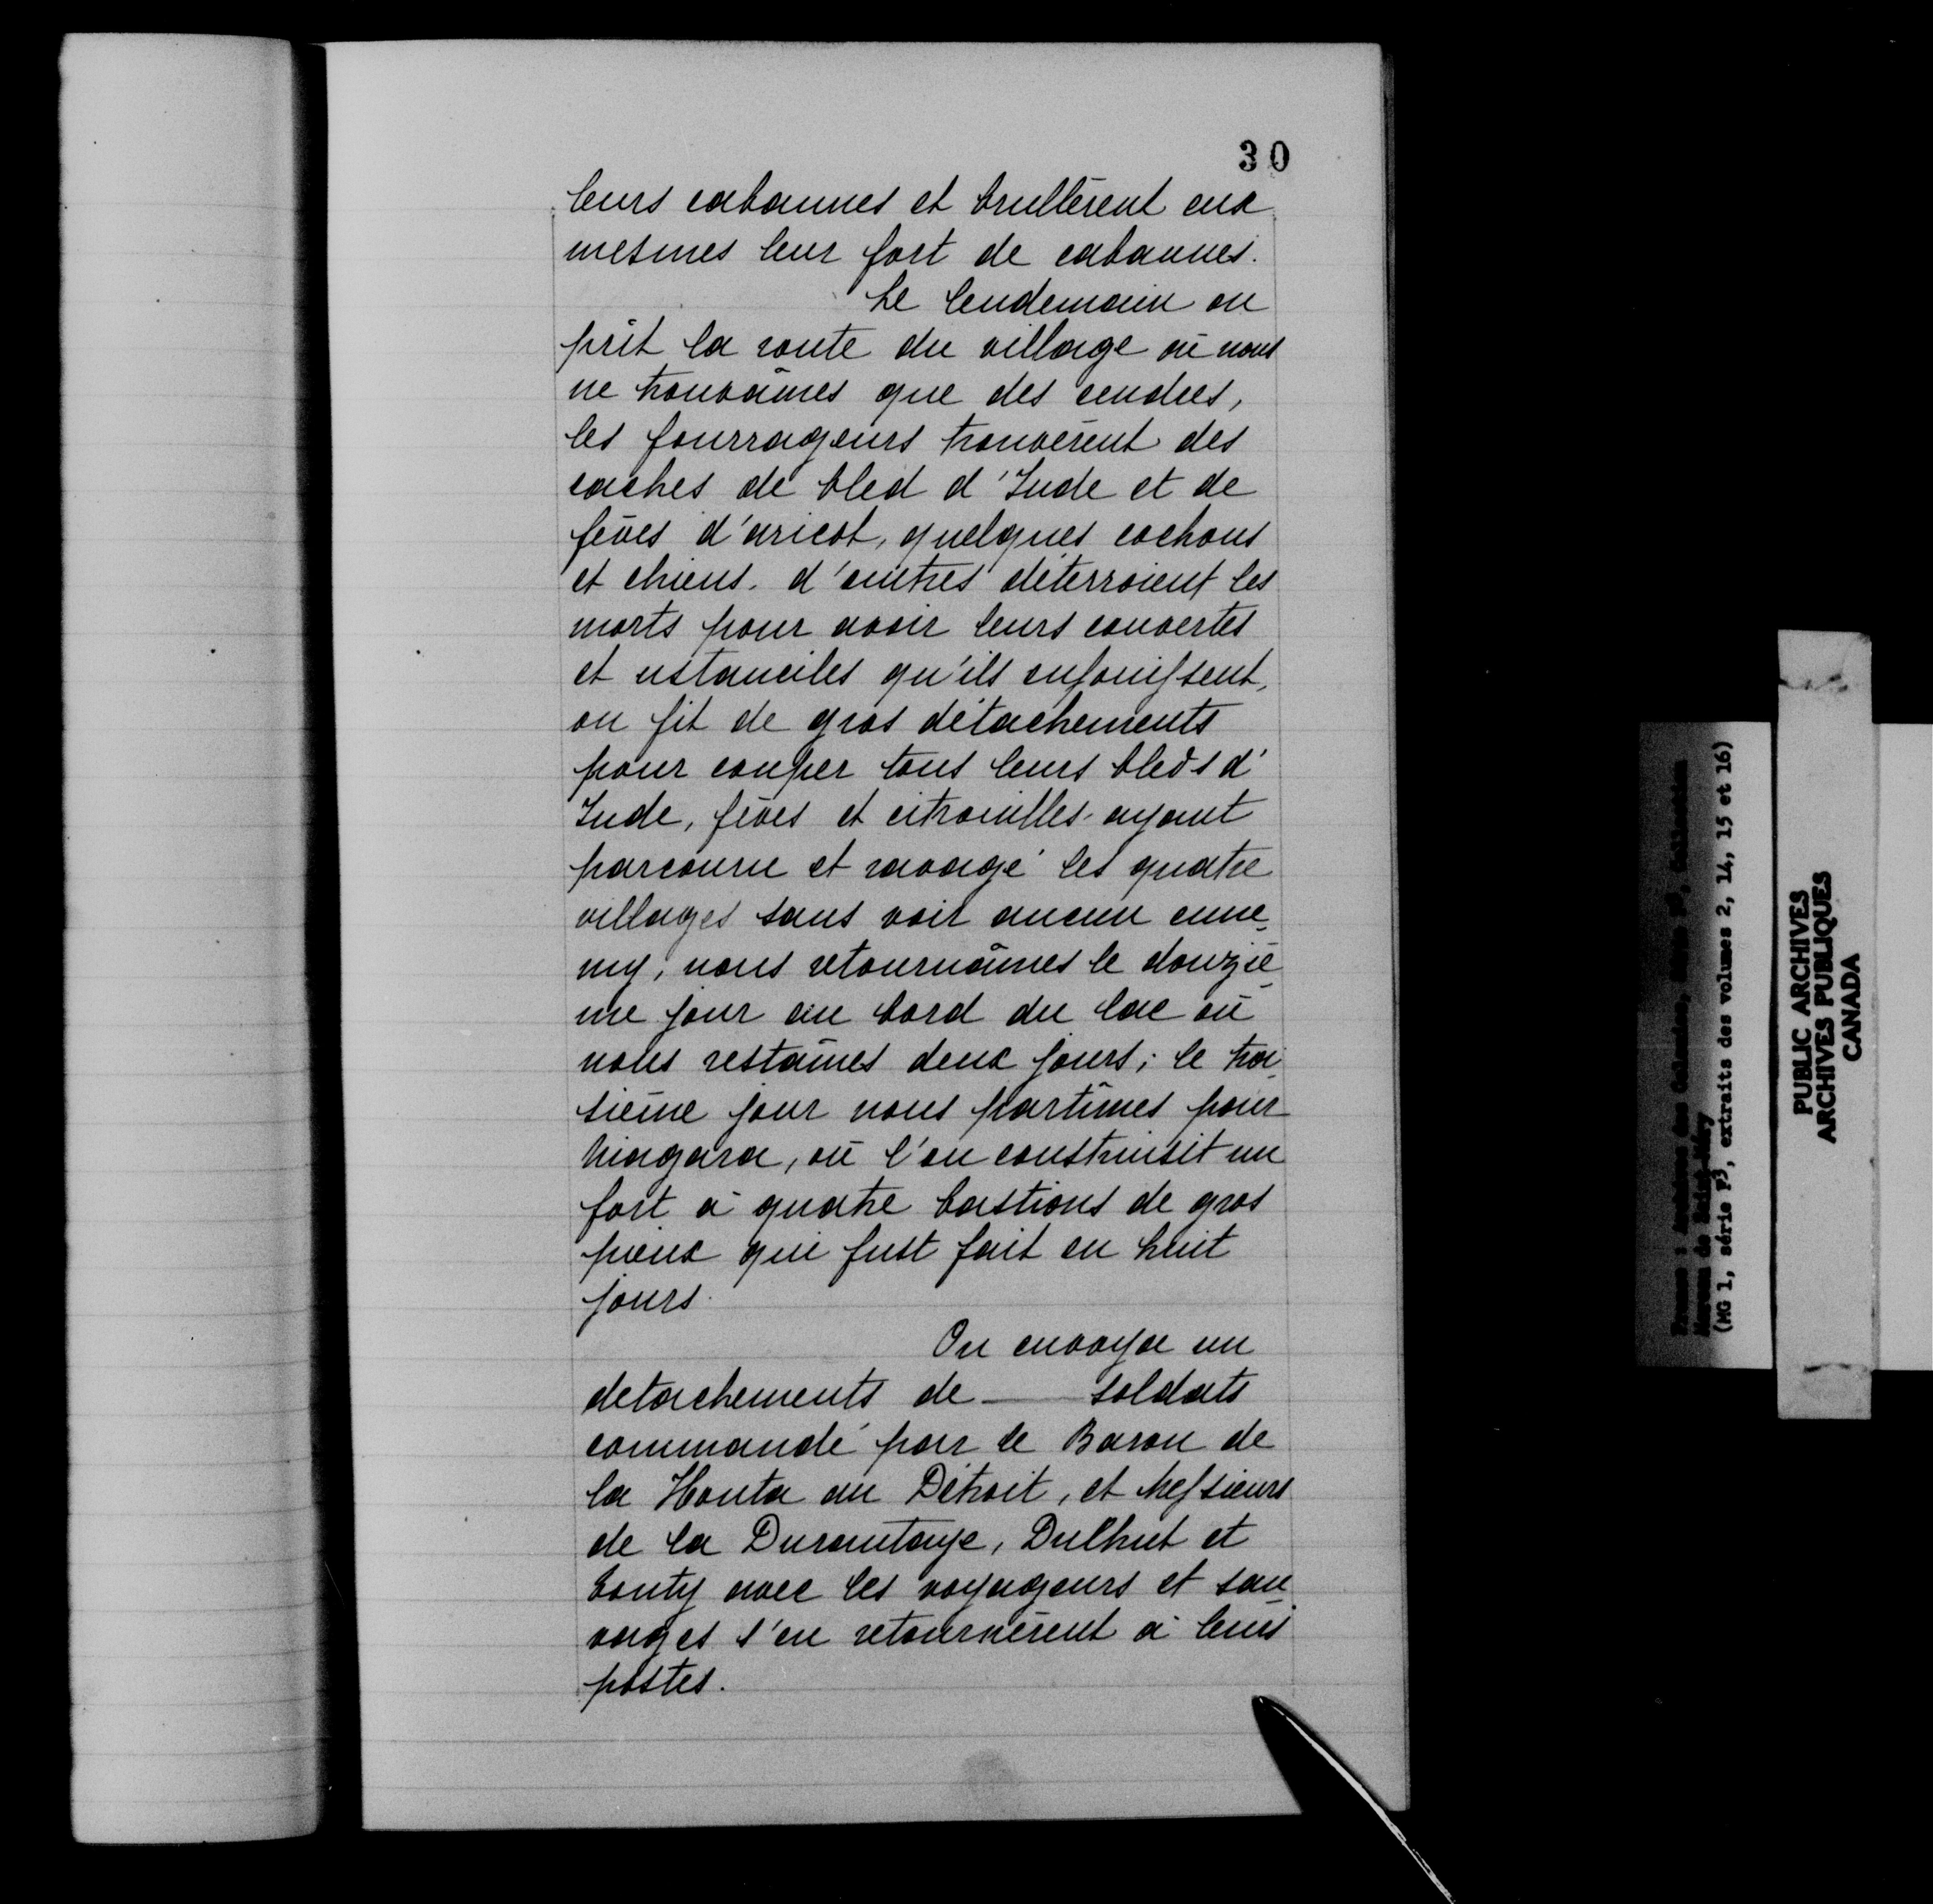 30
leurs cabannes et brullèrent eux
mesmes leur fort de cabannes.
Le lendemain on
prit la route du village où nous
ne trouvâmes que des cendres,
les fourrageurs trouvèrent des
caches de bled d'Inde et de
fèves d'aricot, quelques cochons
et chiens. d'autres déterroient les
morts pour avoir leurs couvertes
et ustanciles qu'ils enfouissent,
on fit de gros détachements
pour couper tous leurs bleds d'
Inde, fèves et citrouilles. ayant
parcouru et ravagé les quatre
villages sans voir aucun enne-
my, nous retournâmes le douziè-
me jour au bord du lac où
nous restâmes deux jours; le troi-
sième jour nous partîmes pour
Niagara, où l'on construisit un
fort à quatre bastions de gros
pieux qui fust fait en huit
jours.
On envoya un
detachements de — soldats
commandé par le Baron de
la Honta au Détroit, et Messieurs
de la Durantaye, Dulhut et
Tonty avec les voyageurs et sau-
vages s'en retournèrent à leurs
postes.
France : Archives des Colonies,
Moreau de Saint-Méry
(MG 1, série F3, extraits des volumes 2, 14, 15 et 16)
PUBLIC ARCHIVES
ARCHIVES PUBLIQUES
CANADA